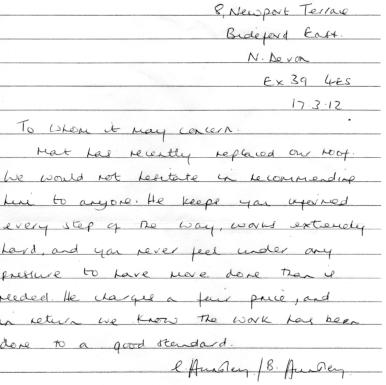 8, Newport Terrace
Bideford East.
N. Devon
EX39 4ES
17.3.12
To whom it may concern.
Mat has recently replaced our roof.
We would not hesitate in recommending
him to anyone. He keeps you informed
every step of the way, works extremely
hard, and you never feel under any
pressure to have more done than is
needed. He charges a fair price, and
in return we know the work has been
done to a good standard.